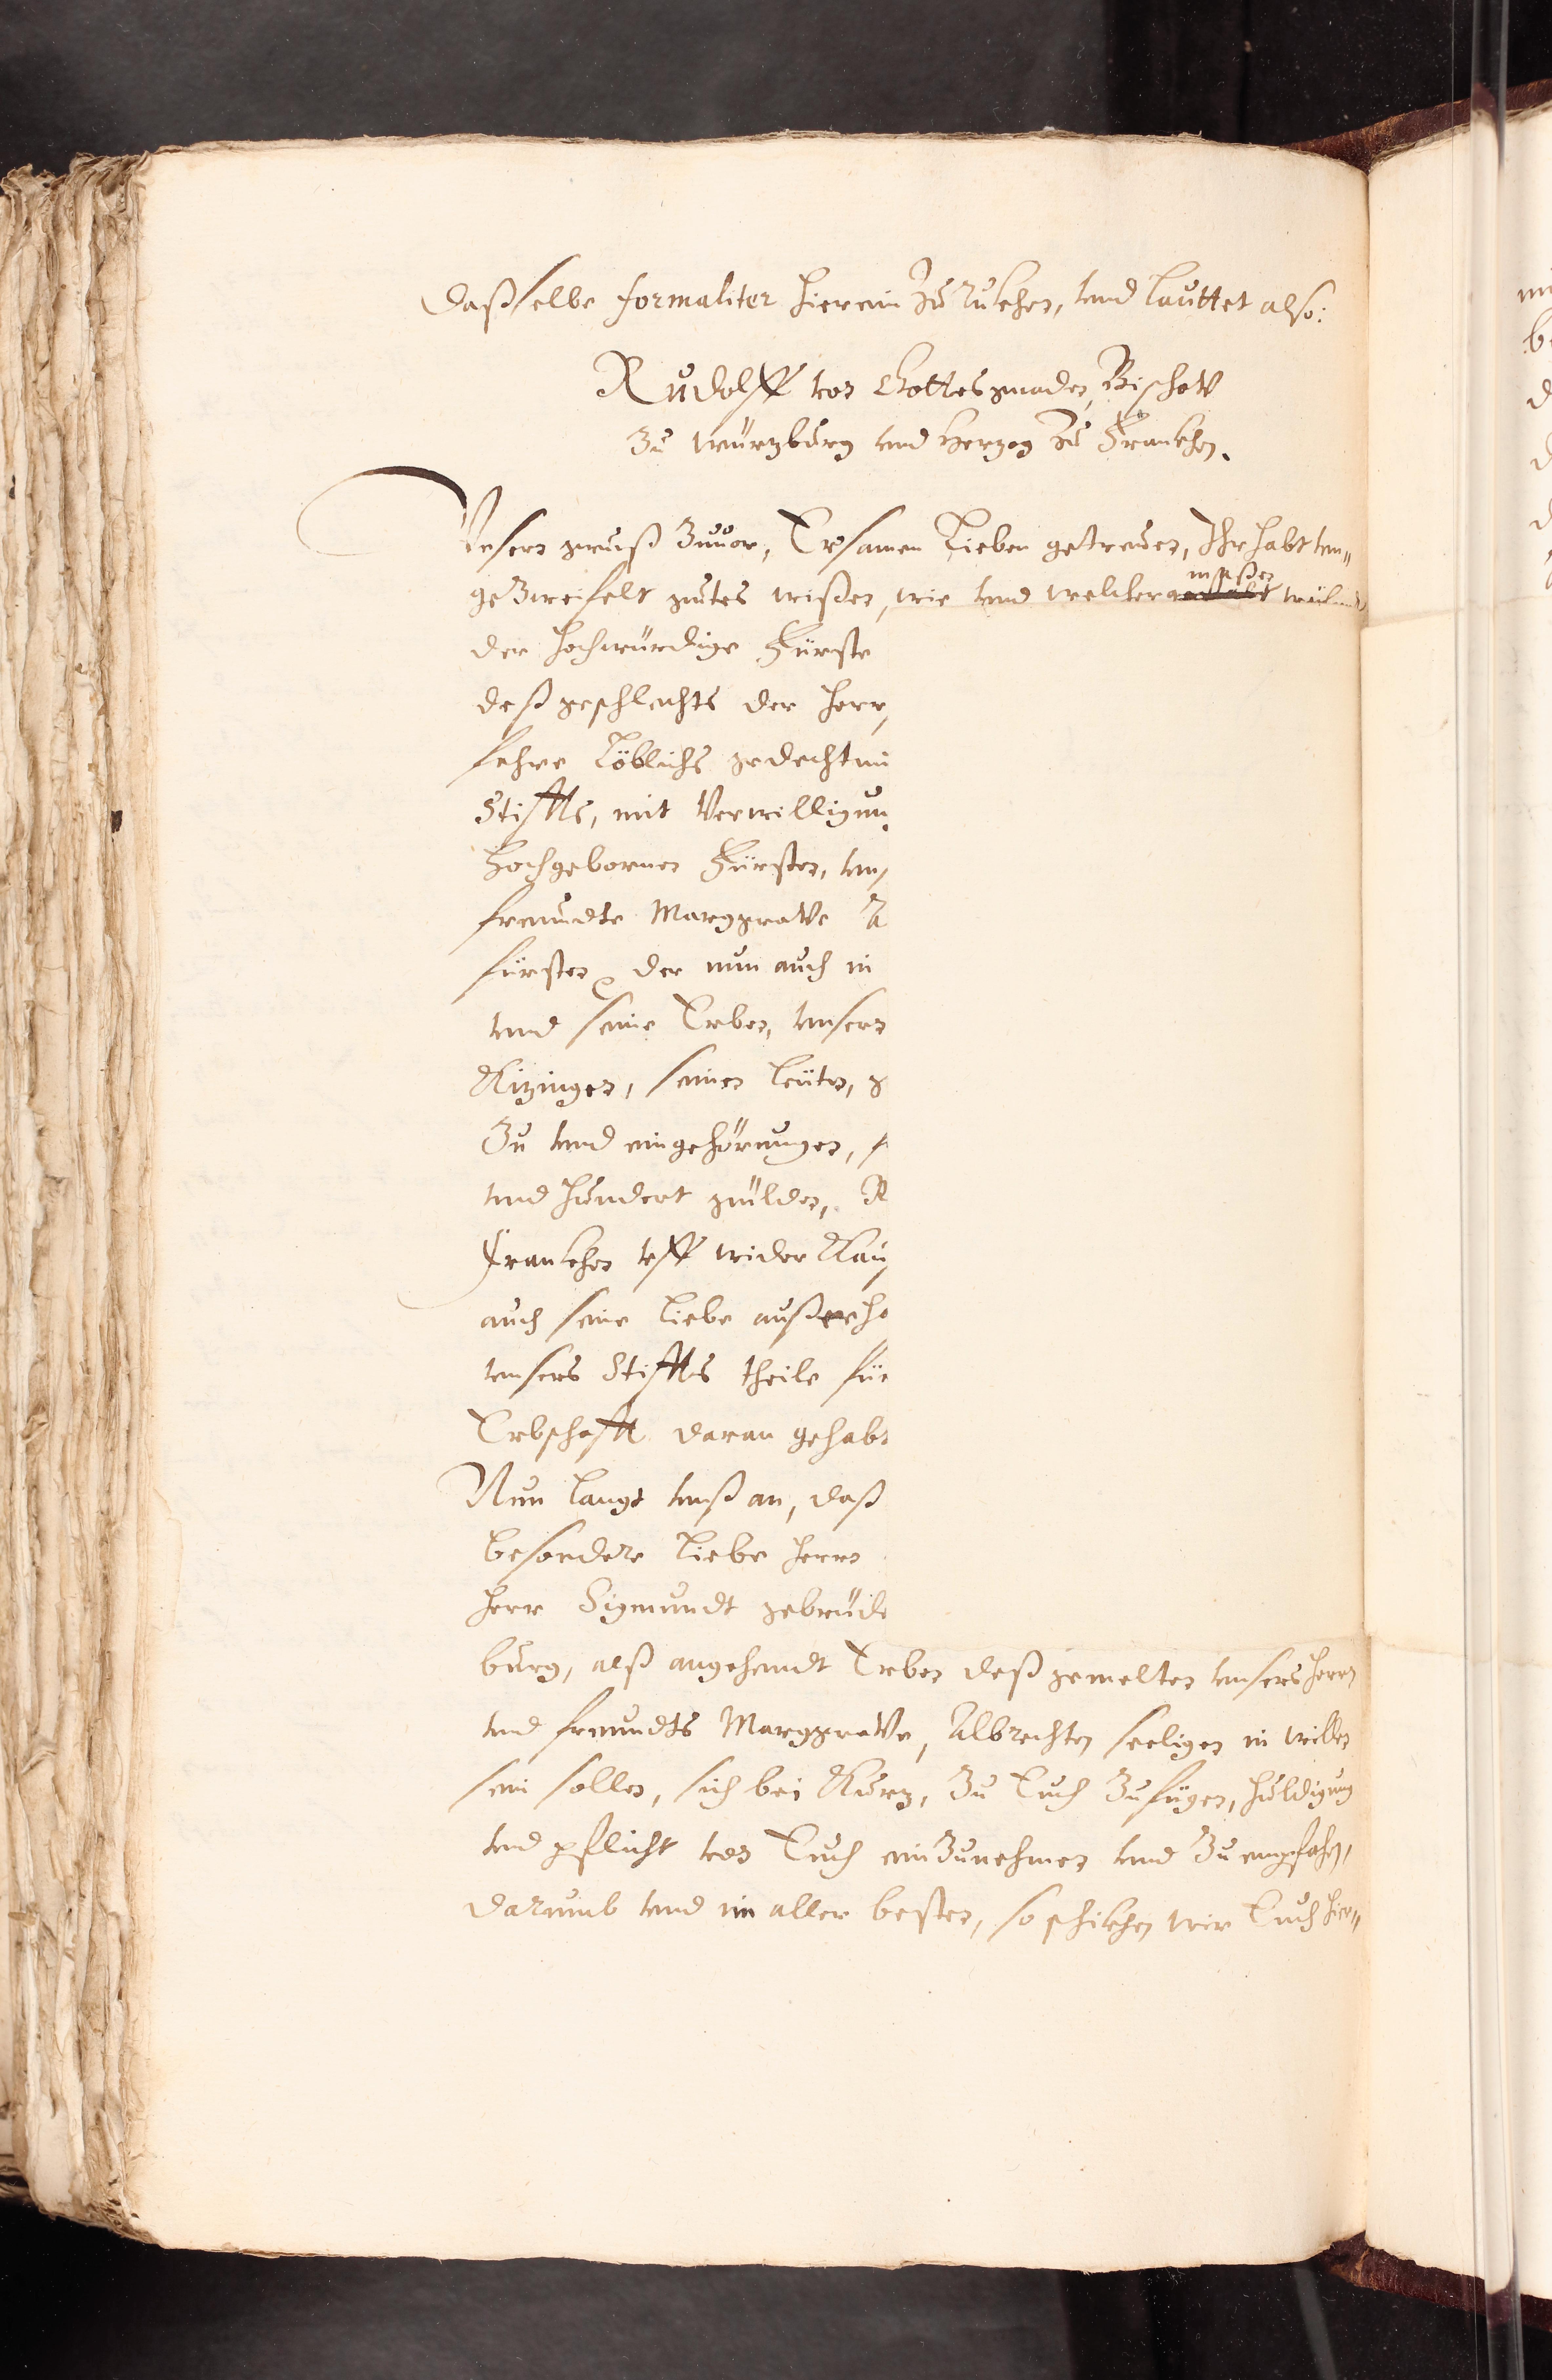 Daßselbe formaliter hierein zu rukhen, vnd lauttet also:
Rudolff von Gottes gnaden, Bischov
Zu würtzburg vnd Hertzog zu Frankhen.
Vnsern gruß Zuuor, Ersamen Lieben getrewen, Ihr habt vn„
geZweifelt gutes wißen, wie vnd welcher maßen
der hochwürdige Fürste
deß geschlechts der herr
sehre Löblichs gedechtni
Stiffts, mit Verwilligun
Hochgebornen Fürsten, vn
freundte Marggrave A
fürsten der nun auch in
vnd seine Erben, vnsern
Kitzingen, seinen leuten, g
Zu vnd eingehörungen,
vnd hundert gulden, R
Frankhen vff wider Kau
auch seine Liebe
vnsers Stiffts theile für
Erbschafft daran gehabt
Nun langt vnß an, daß
besondere liebe herrn
herr Sigmundt gebrüde
burg, alß angehendt Erben deß gemelten vnsers herrn
vnd freundts Marggrave, Albrechten seeligen in willen
sein sollen, sich bei Kurtz, Zu Euch Zufügen, huldigung
vnd pflicht von Euch einZunehmen vnd Zu empfahen,
darumb vnd im aller besten, so schikhen wir Euch hier„